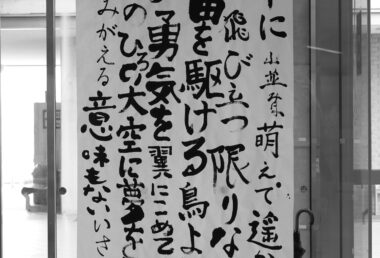 に山並みは萌えて遥か
飛び立つ限りな
を駆ける鳥よ
勇気を翼にこめて
のひろい大空に夢を
みがえる意味もないいさ